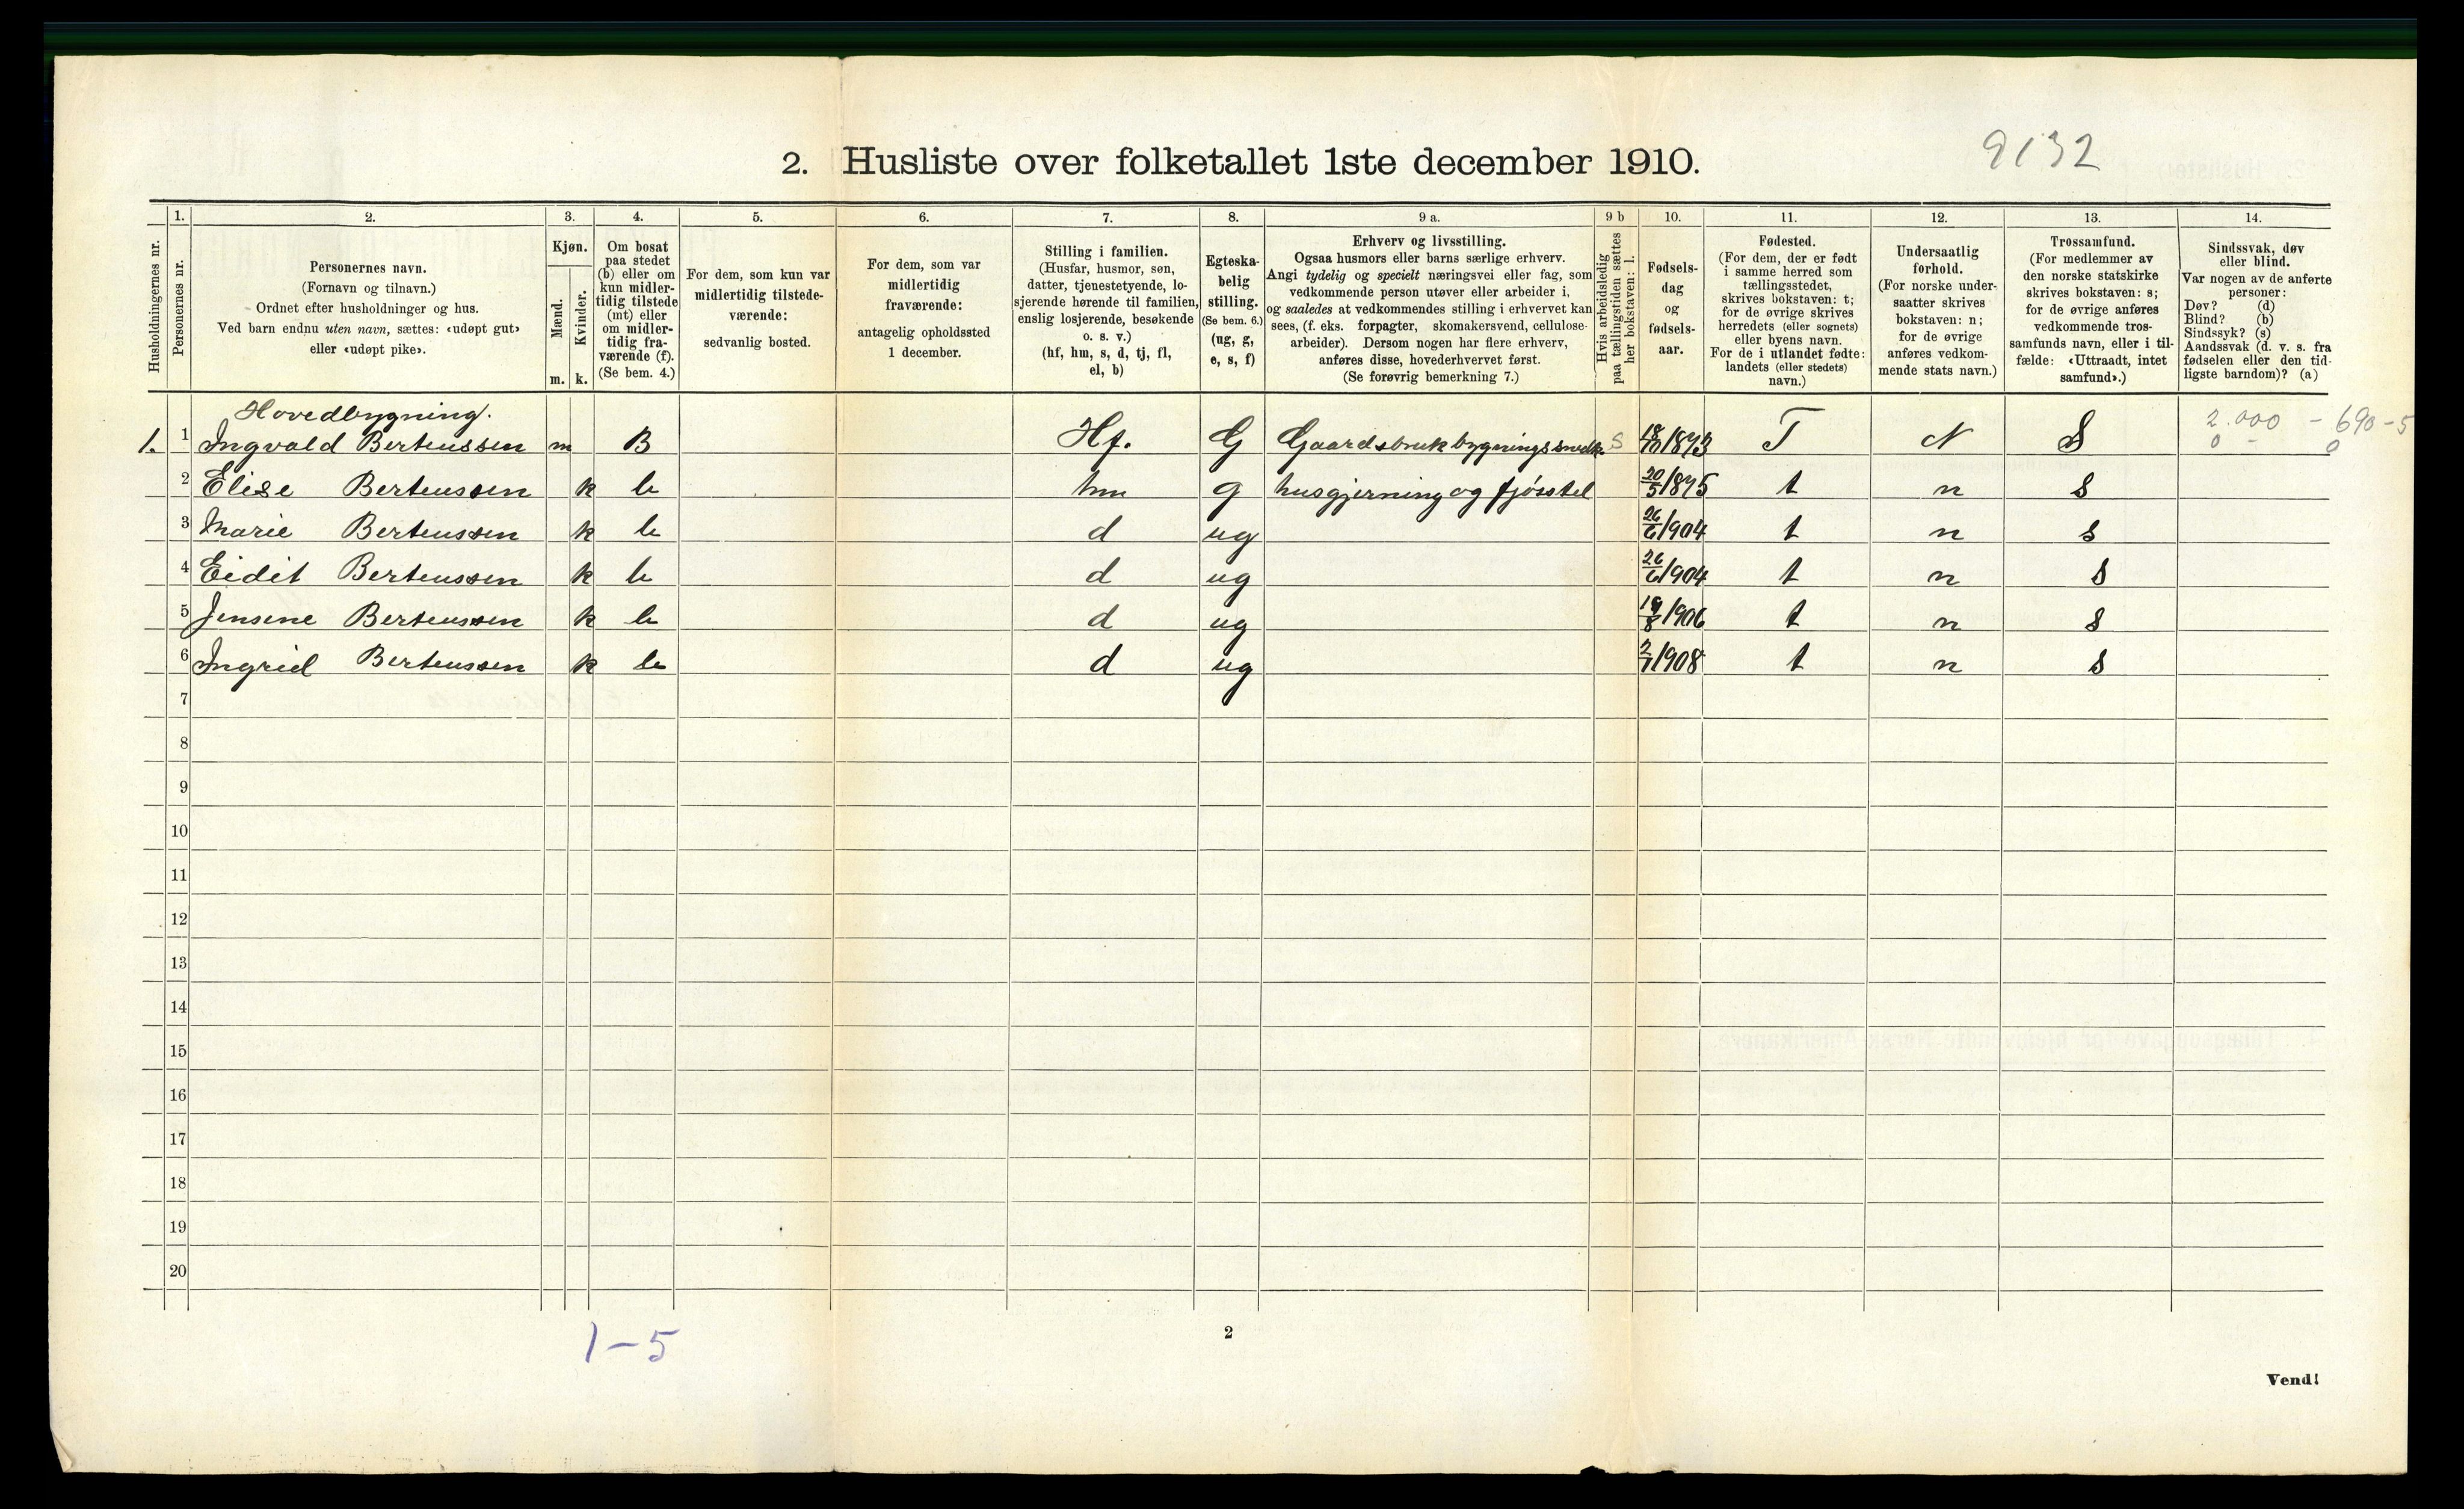 2. Husliste over folketallet 1ste december 1910.
9132
Husholdningernes nr.
1.
Personernes nr.
2.
Personernes navn.
(Fornavn og tilnavn.)
Ordnet efter husholdninger og hus.
Ved barn endnu uten navn, sættes: «udøpt gut»
eller «udøpt pike».
3.
Kjøn.
Mænd.
Kvinder.
m. k.
4.
Om bosat
paa stedet
(b) eller om
kun midler-
tidig tilstede
(mt) eller
om midler-
tidig fra-
værende (f).
(Se bem. 4.)
5.
For dem, som kun var
midlertidig tilstede-
værende:
sedvanlig bosted.
6.
For dem, som var
midlertidig
fraværende:
antagelig opholdssted
1 december.
7.
Stilling i familien.
(Husfar, husmor, søn,
datter, tjenestetyende, lo-
sjerende hørende til familien,
enslig losjerende, besøkende
o. s. v.)
(hf, hm, s, d, tj, fl,
el, b)
8.
Egteska-
belig
stilling.
(Se bem. 6.)
(ug, g,
e, s, f)
9 a.
Erhverv og livsstilling.
Ogsaa husmors eller barns særlige erhverv.
Angi tydelig og specielt næringsvei eller fag, som
vedkommende person utøver eller arbeider i,
og saaledes at vedkommendes stilling i erhvervet kan
sees, (f. eks. forpagter, skomakersvend, cellulose-
arbeider). Dersom nogen har flere erhverv,
anføres disse, hovederhvervet først.
(Se forøvrig bemerkning 7.)
9 b
Hvis arbeidsledig
paa tællingstiden sættes
her bokstaven: l.
10.
Fødsels-
dag
og
fødsels-
aar.
11.
Fødested.
(For dem, der er født
i samme herred som
tællingsstedet,
skrives bokstaven: t;
for de øvrige skrives
herredets (eller sognets)
eller byens navn.
For de i utlandet fødte:
landets (eller stedets)
navn.)
12.
Undersaatlig
forhold.
(For norske under-
saatter skrives
bokstaven: n;
for de øvrige
anføres vedkom-
mende stats navn.)
13.
Trossamfund.
(For medlemmer av
den norske statskirke
skrives bokstaven: s;
for de øvrige anføres
vedkommende tros-
samfunds navn, eller i til-
fælde: «Uttraadt, intet
samfund».)
14.
Sindssvak, døv
eller blind.
Var nogen av de anførte
personer:
Døv? (d)
Blind? (b)
Sindssyk? (s)
Aandssvak (d. v. s. fra
fødselen eller den tid-
ligste barndom)? (a)
Hovedbygning.
2.000 - 690-5
0 - 0
1. 1 Ingvald Berteussen m B Hf. G Gaardsbruk bygningssnedk. S 18/10 1873 T N S
2 Elise Berteussen k b hm g husgjerning og fjøsstel 20/5 1875 t n s
3 Marie Berteussen k b d ug 26/6 1904 t n s
4 Eidit Berteussen k b d ug 26/6 1904 t n s
5 Jensene Berteussen k b d ug 19/8 1906 t n s
6 Ingrid Berteussen k b d ug 2/7 1908 t n s
7
8
9
10
11
12
13
14
15
16
17
18
19
20
1-5
2
Vend!